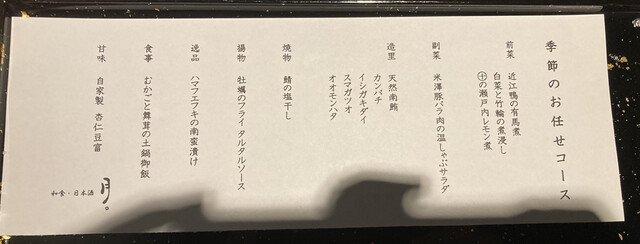 季節のお任せコース
前菜 近江鴨の有馬煮
白菜と竹輪の煮浸し
㊉の瀬戸内レモン煮
副菜 米澤豚バラ肉の温しゃぶサラダ
造里 天然南鮪
カンパチ
イシガキダイ
スマガツオ
オオモンハタ
焼物 鯖の塩干し
揚物 牡蠣のフライ タルタルソース
逸品 ハマフエフキの南蛮漬け
食事 むかごと舞茸の土鍋御飯
甘味 自家製 杏仁豆富
和食・日本酒 月。